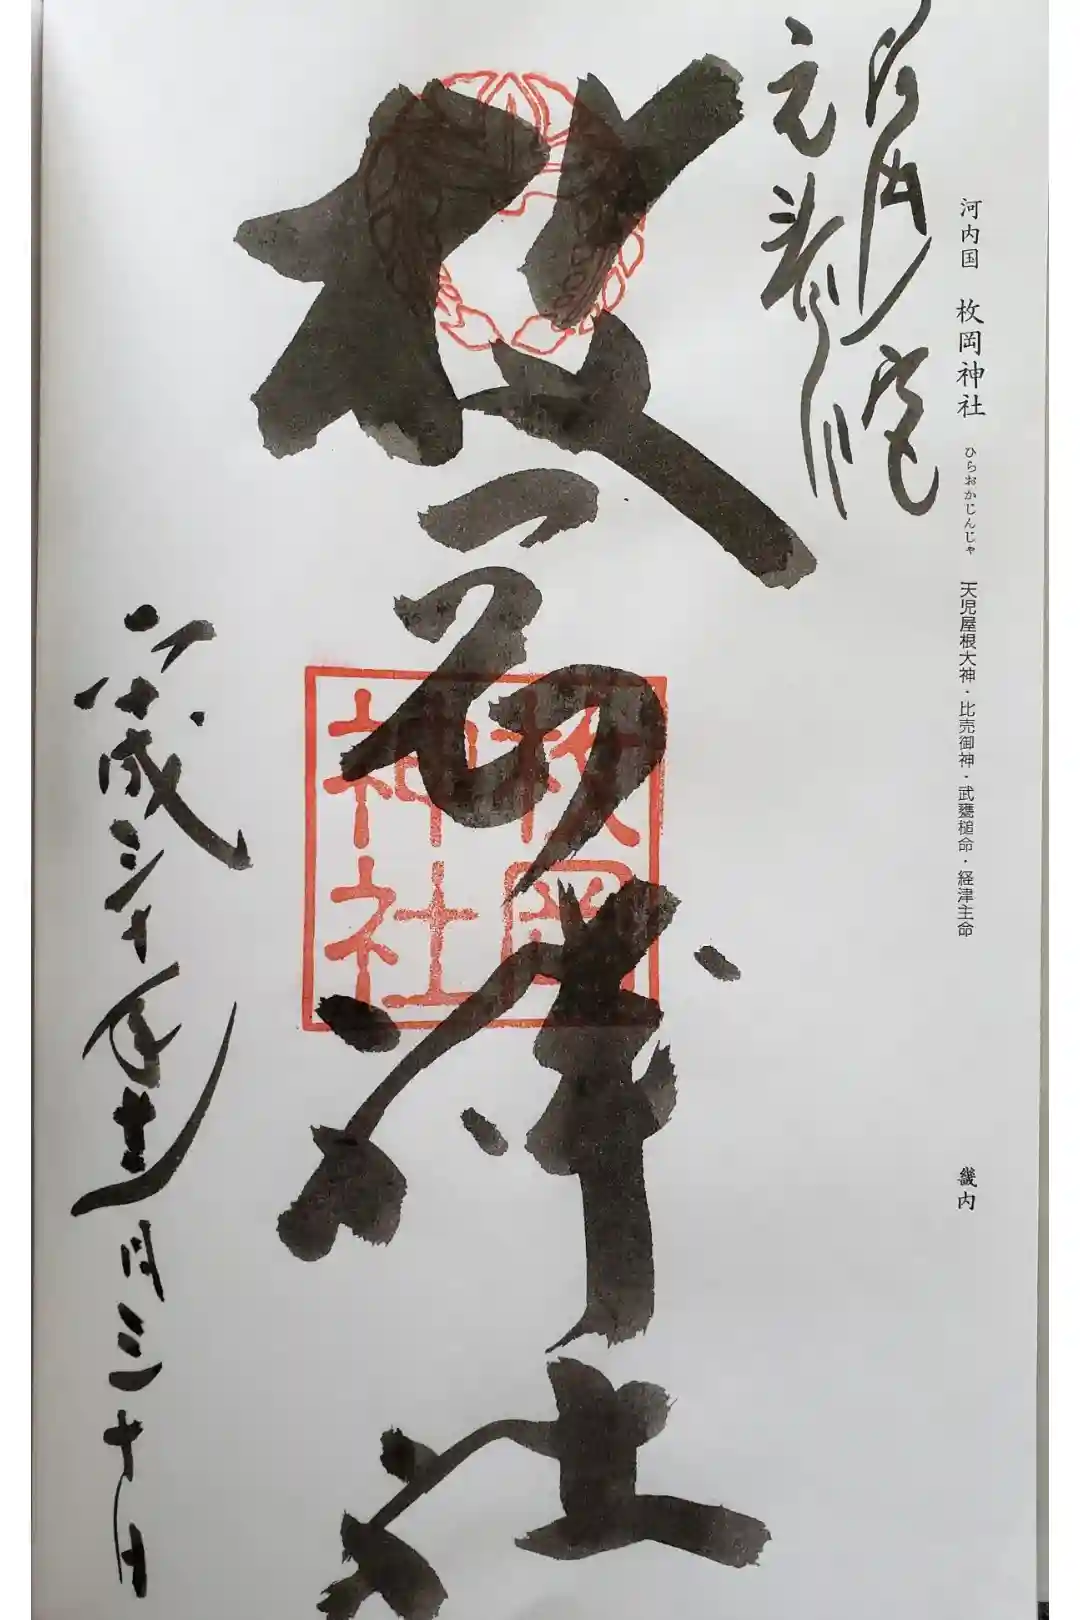 河内国 枚岡神社 ひらおかじんじゃ 天児屋根大神・比売御神・武甕槌命・経津主命 畿内
河内国一宮
元春日
枚岡神社
枚岡
神社
平成三十年十一月三十日